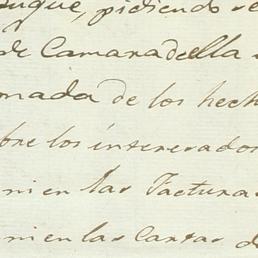 pidiendo se
de Camaradella
mada de los hech
bre los interesados
ni en las Factura
ni en las Cartas d